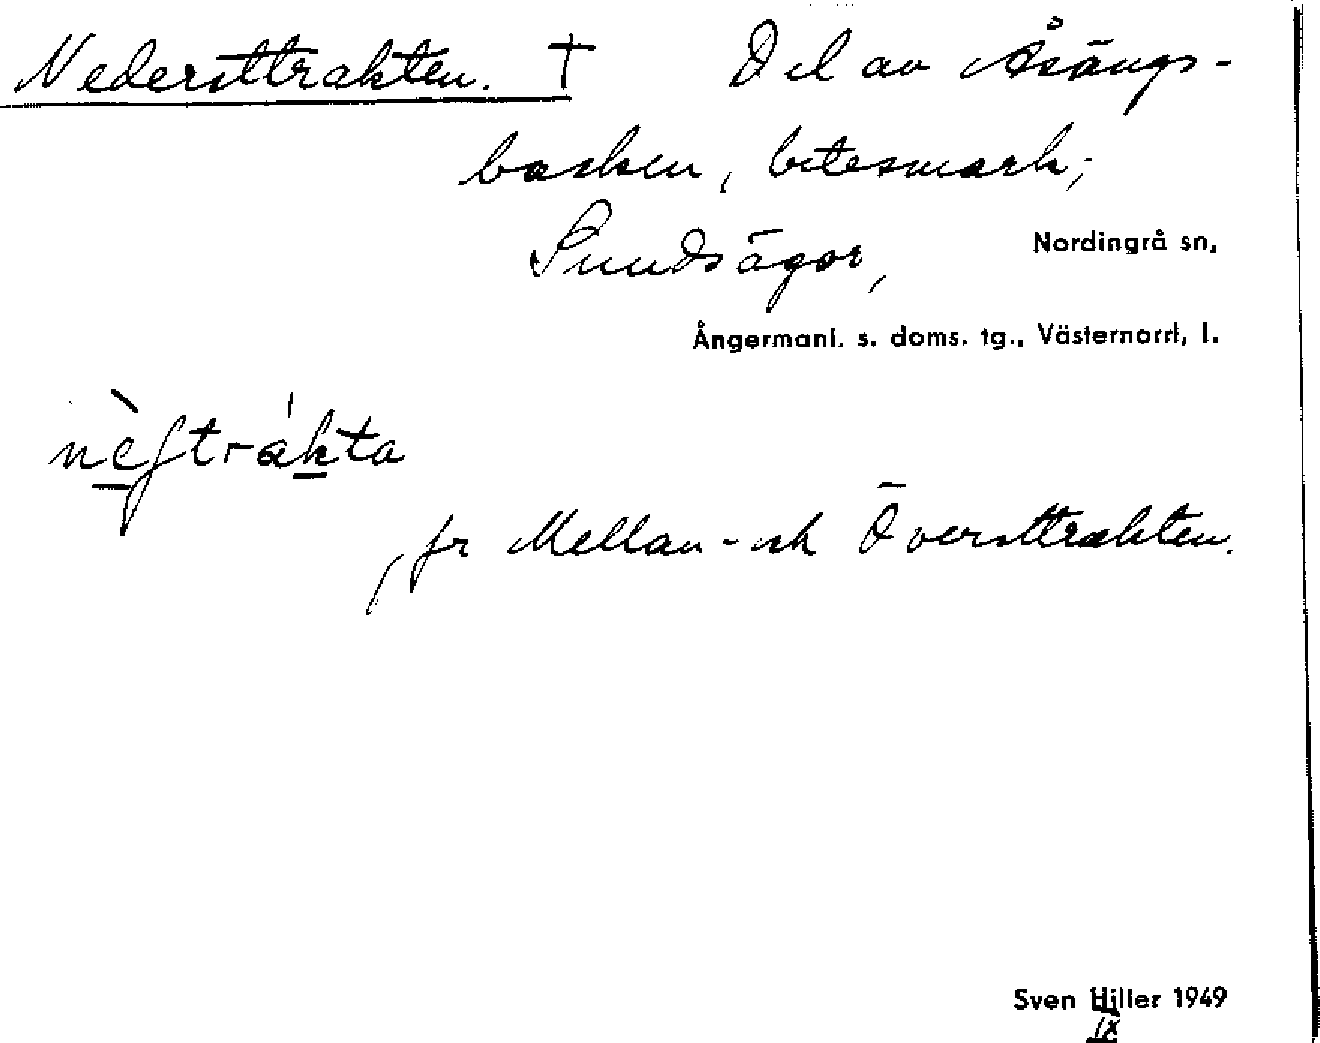 Nedersttrakten. † Del av Åsängs-
backen, betesmark;
Sundsägor, Nordingrå sn,
Ångermanl. s. doms. tg., Västernorrl, l.
nèʃtrákta
jfr Mellan- och Översttrakten.
Sven Hiller 1949
IX